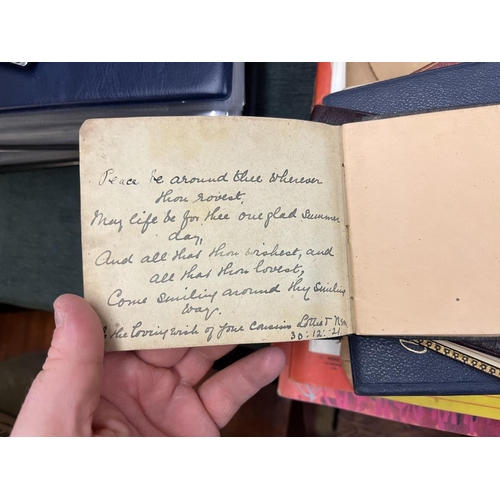 Peace be around thee wherever
thou rovest,
May life be for thee one glad summer
day,
And all that thou wishest, and
all that thou lovest,
Come smiling around thy smiling
way.
the loving wish of your cousins Lottie &
30.12.21